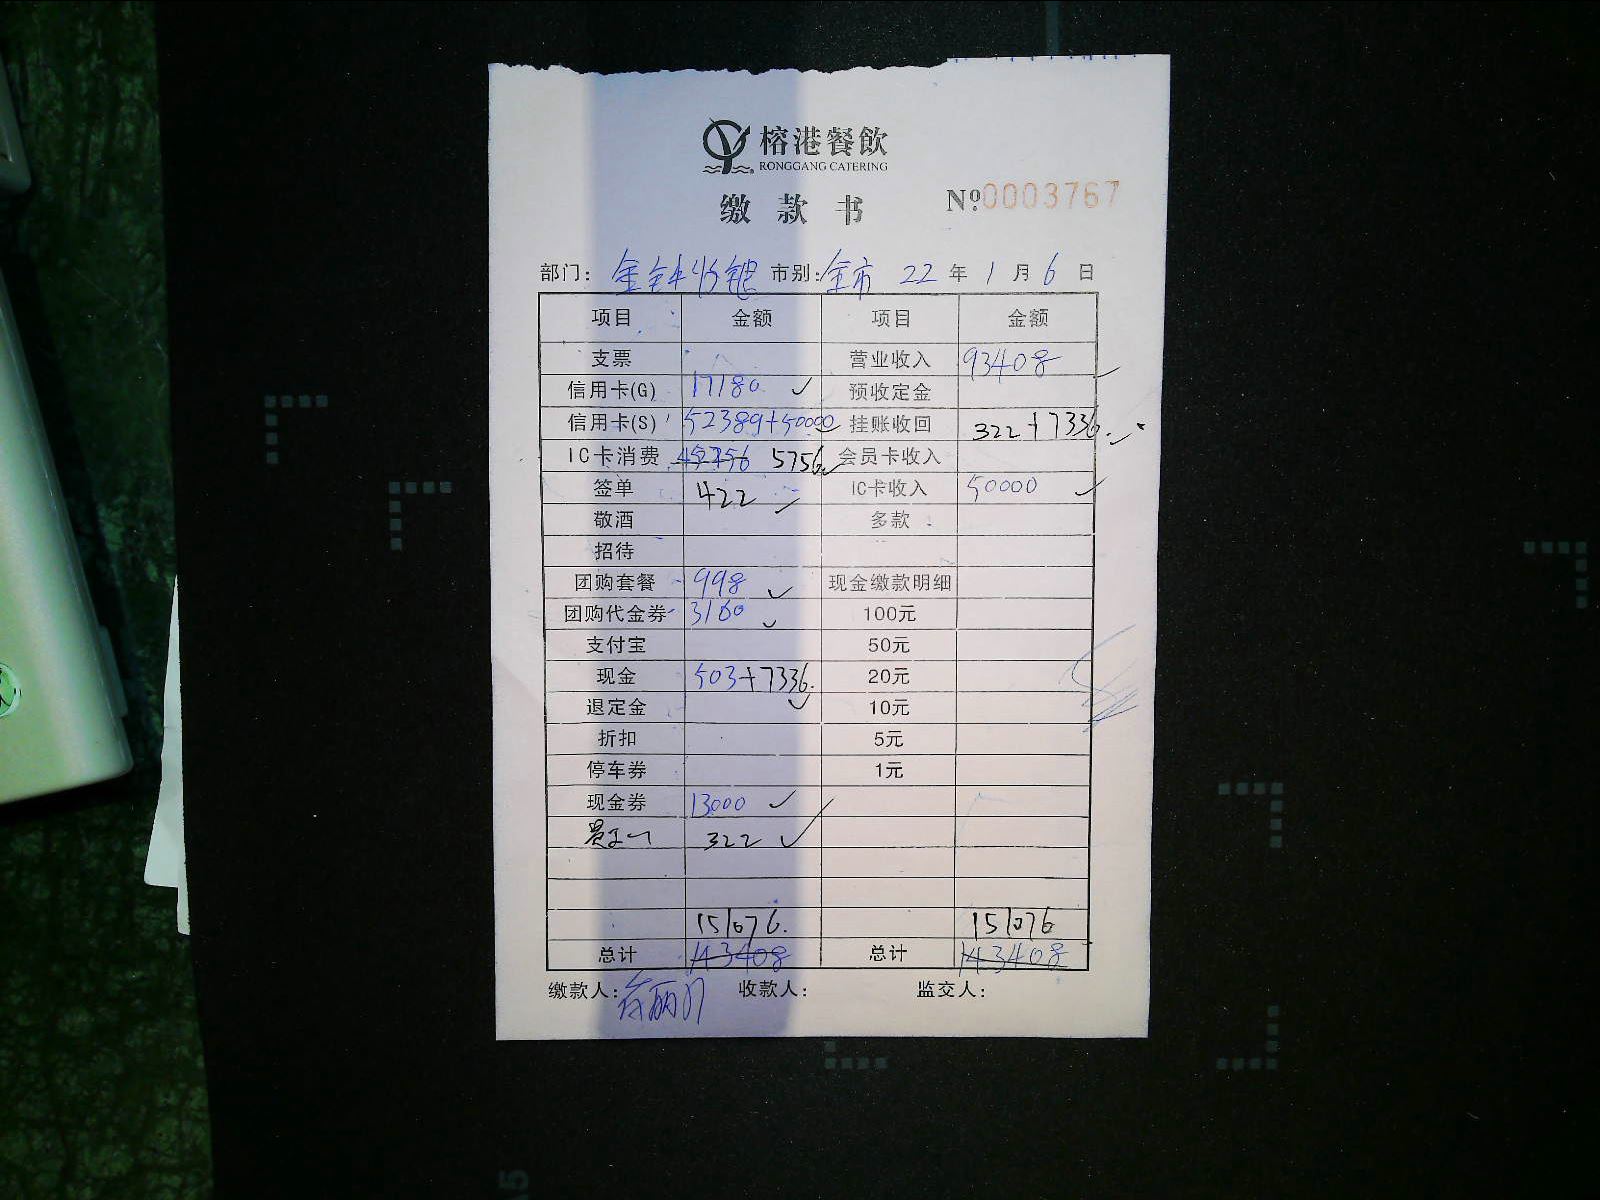 榕港餐飲
RONGGANG CATERING
缴款书 Nº 0003767
部门: 金钟收银 市别: 全市 22 年 1 月 6 日
项目 金额 项目 金额
支票 营业收入 93408
信用卡(G) 17180 预收定金
信用卡(S) 52389+50000 挂账收回 322+7336.
IC卡消费 5756 会员卡收入
签单 422 IC卡收入 50000
敬酒 多款
招待
团购套餐 998 现金缴款明细
团购代金券 3160 100元
支付宝 50元
现金 503+7336. 20元
退定金 10元
折扣 5元
停车券 1元
现金券 13000
322
151076. 151076
总计 143408 总计 143408
缴款人: 收款人: 监交人: